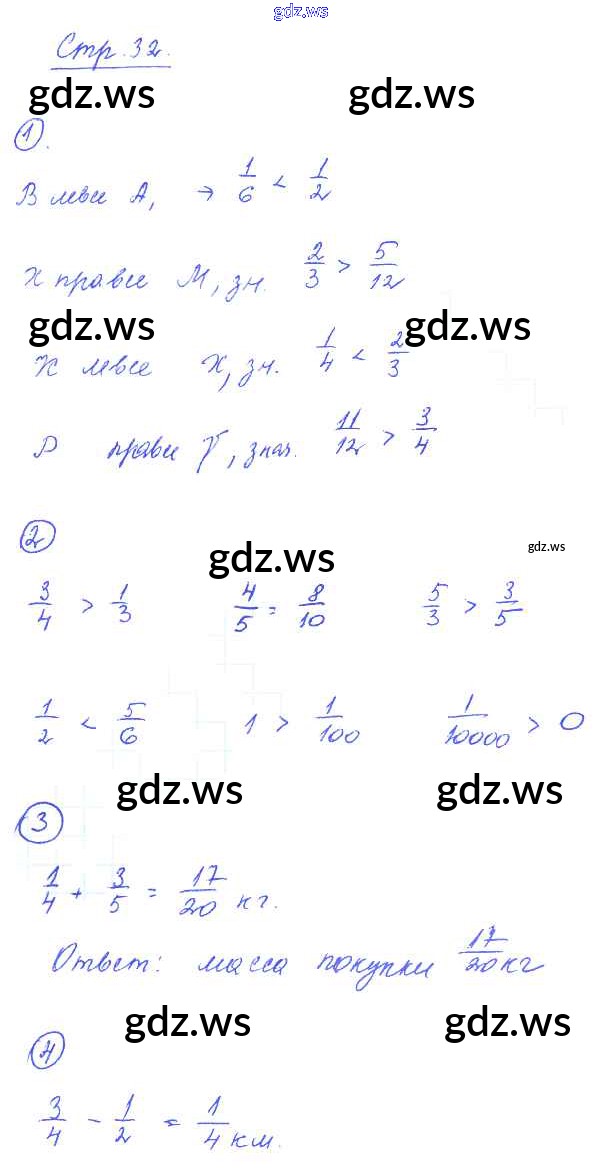 gdz.ws
Стр. 32.
gdz.ws gdz.ws
①.
В левее А, → 1/6 < 1/2
Х правее М, зн. 2/3 > 5/12
gdz.ws gdz.ws
К левее Х, зн. 1/4 < 2/3
Р правее Т, знач. 11/12 > 3/4
②
gdz.ws gdz.ws
3/4 > 1/3 4/5 = 8/10 5/3 > 3/5
1/2 < 5/6 1 > 1/100 1/10000 > 0
gdz.ws gdz.ws
③
1/4 + 3/5 = 17/20 кг.
Ответ: масса покупки 17/20 кг
gdz.ws gdz.ws
④
3/4 - 1/2 = 1/4 км.